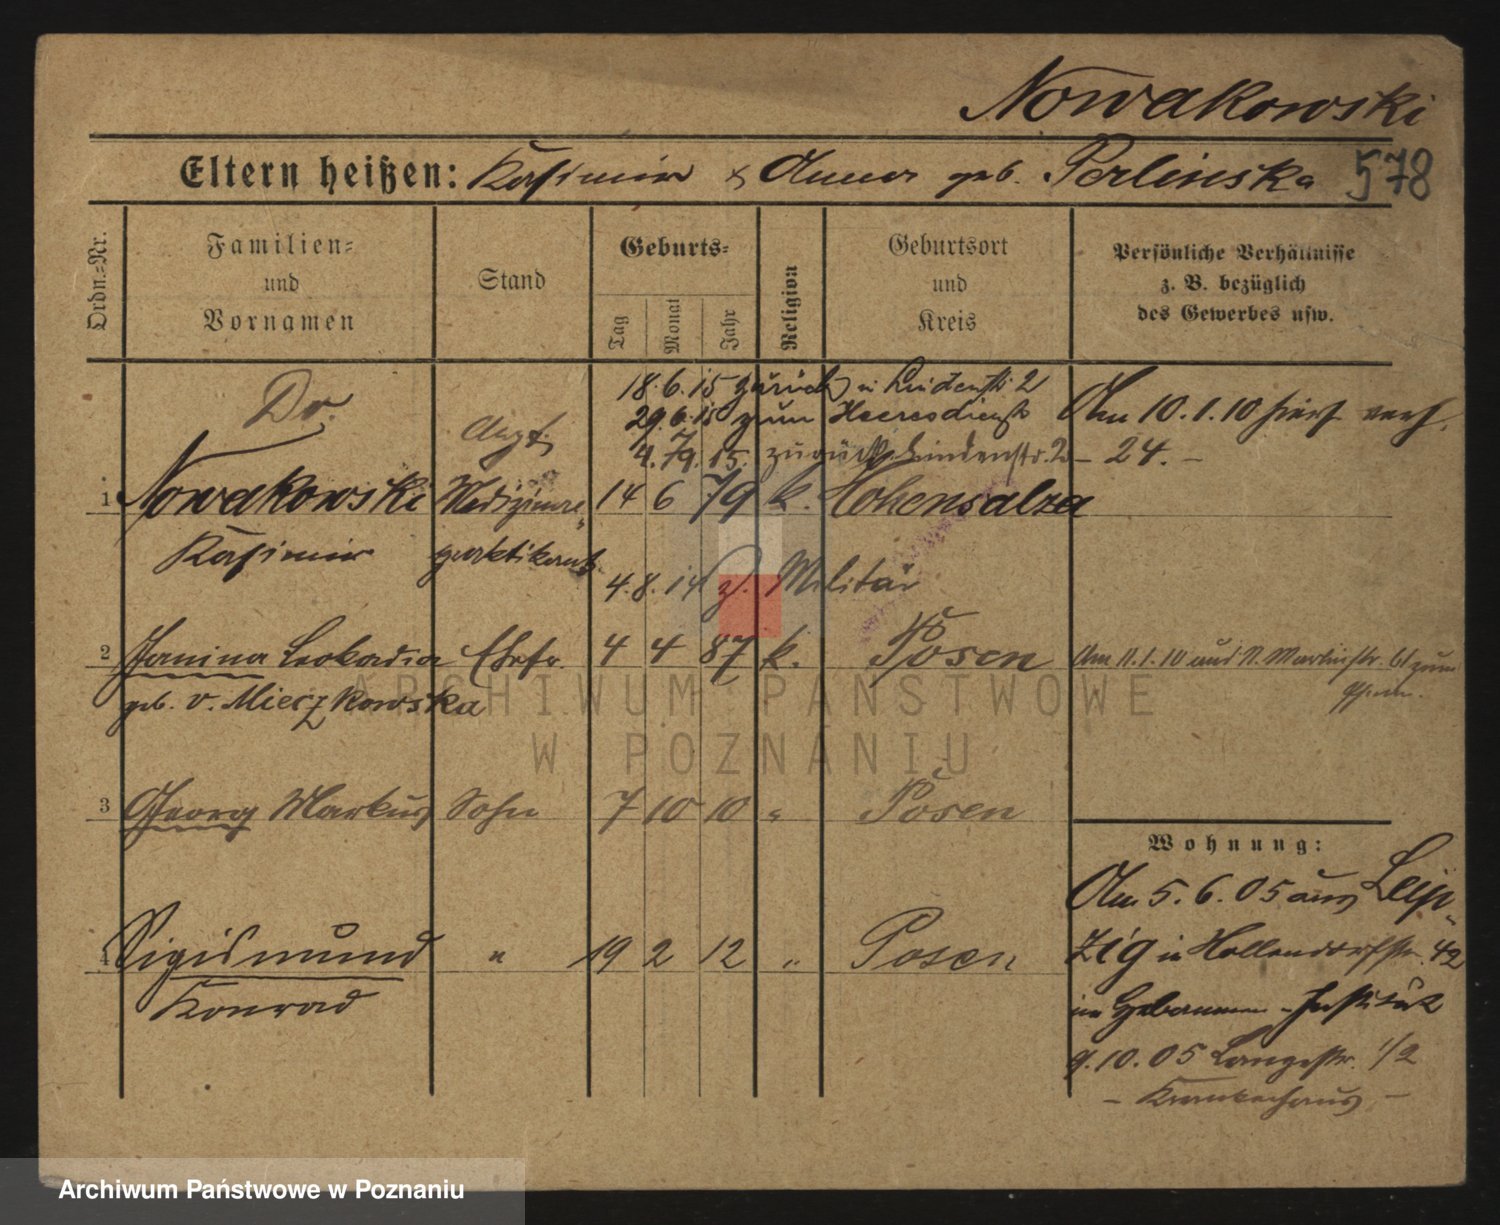 Nowakowski
Eltern heißen: Kasimir & Anna geb. Perlinska 578
Ordn.-Nr.
Familien- und Vornamen
Stand
Geburts-
Tag
Monat
Jahr
Religion
Geburtsort und Kreis
Persönliche Verhältnisse
z. B. bezüglich
des Gewerbes usw.
18.6.15 zurück in Lindenstr. 2
Dr.
29.6.15 zum Heeresdienst
Arzt
4.79.15. zurück Lindenstr. 2
Am 10.1.10 hier verh.
- 24. -
1 Nowakowski Medizinal- 14 6 79 k. Hohensalza
Kasimir praktikant
4.8.14 z. Militär
2 Janina Leokadia Ehefr. 4 4 87 k. Posen
geb. v. Mieczkowska
Am 11.1.10 aus N. Martinstr. 61 zum
3 Georg Markus Sohn 7 10 10 " Posen
4 Sigismund " 19 2 12 " Posen
Konrad
Wohnung:
Am 5.6.05 aus Leip-
zig in Hollendorfstr. 42
im Hebammen-Institut
9.10.05 Langestr. 1/2
- Krankenhaus -
ARCHIWUM PAŃSTWOWE
W POZNANIU
Archiwum Państwowe w Poznaniu